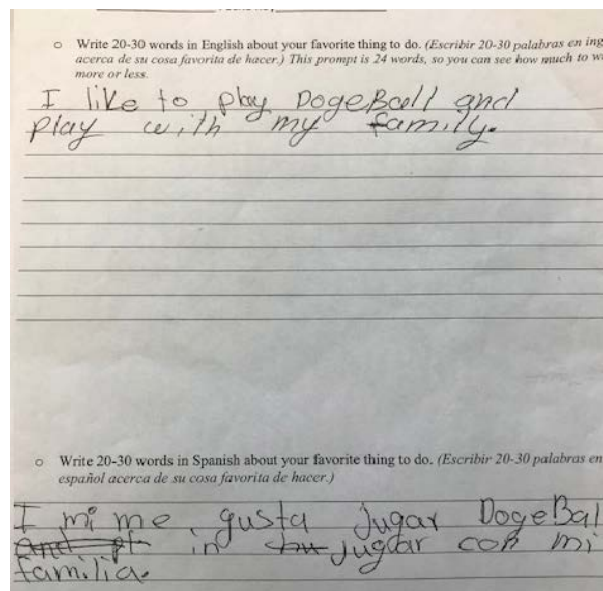 ○ Write 20-30 words in English about your favorite thing to do. (Escribir 20-30 palabras en ing
acerca de su cosa favorita de hacer.) This prompt is 24 words, so you can see how much to w
more or less.
I like to play DogeBall and
play with my family.
○ Write 20-30 words in Spanish about your favorite thing to do. (Escribir 20-30 palabras en
español acerca de su cosa favorita de hacer.)
I mi me gusta Jugar DogeBal
in juguar con mi
familia.